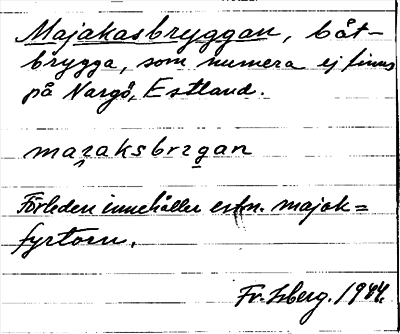 Majakasbryggan, båt-
brygga, som numera ej finns
på Nargö, Estland.
maɪ̯aksbrɪgan
Förleden innehåller estn. majak =
fyrtorn.
Fr. Isberg. 1944.